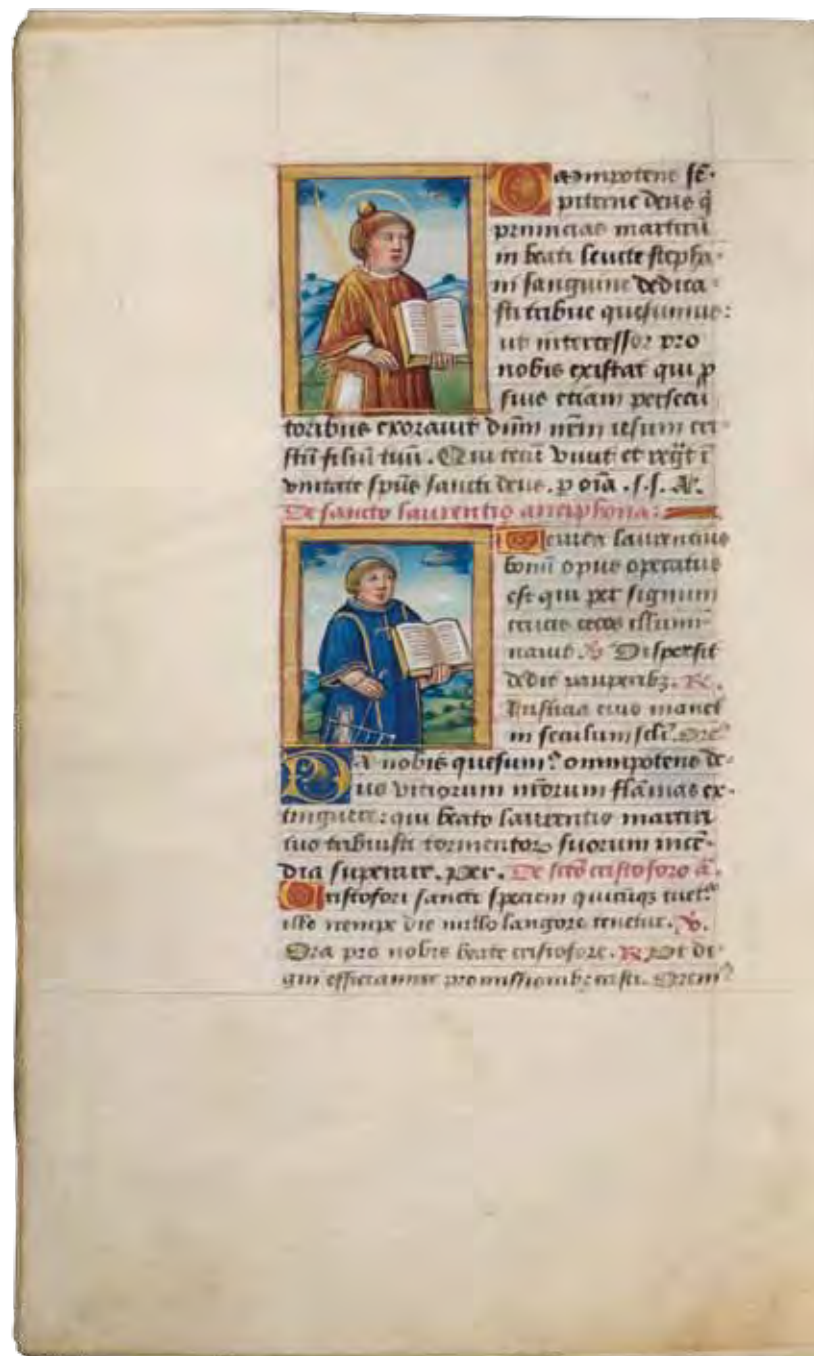 Omnipotens sē-
piterne deus q̄
primicias martirū
in beati leuite stepha-
ni sanguine dedica-
sti tribue quesumus:
ut intercessor pro
nobis existat qui p̱
suis etiam persecu
toribus exorauit dn̄m nr̄m iesum cri-
stū filiū tuū. Qui tecū viuit et regn̄t ī
vnitate spūs sancti deus. p oīa .s.s. A.
De sancto laurentio antiphona:
Leuita laurencius
bonū opus operatus
est qui per signum
crucis cecos illumi-
nauit. V Dispersit
dedit pauperibꝫ. R.
Iusticia eius manet
in seculum seli. Ore⁹
Da nobis quesum⁹ omnipotens de-
us viciorum nr̄orum flāmas ex-
tinguere: qui beato laurentio martiri
tuo tribuisti tormentoꝝ suorum ince-
dia superare. Per. De sctō cristoforo ā.
Cristofori sancti speciem quicūqꝫ tuet⁹
illo nempe die nullo langore tenetur. V.
Ora pro nobis beate cristofore. R Vt di-
gni efficiamur promissionibꝫ cristi. Orem⁹